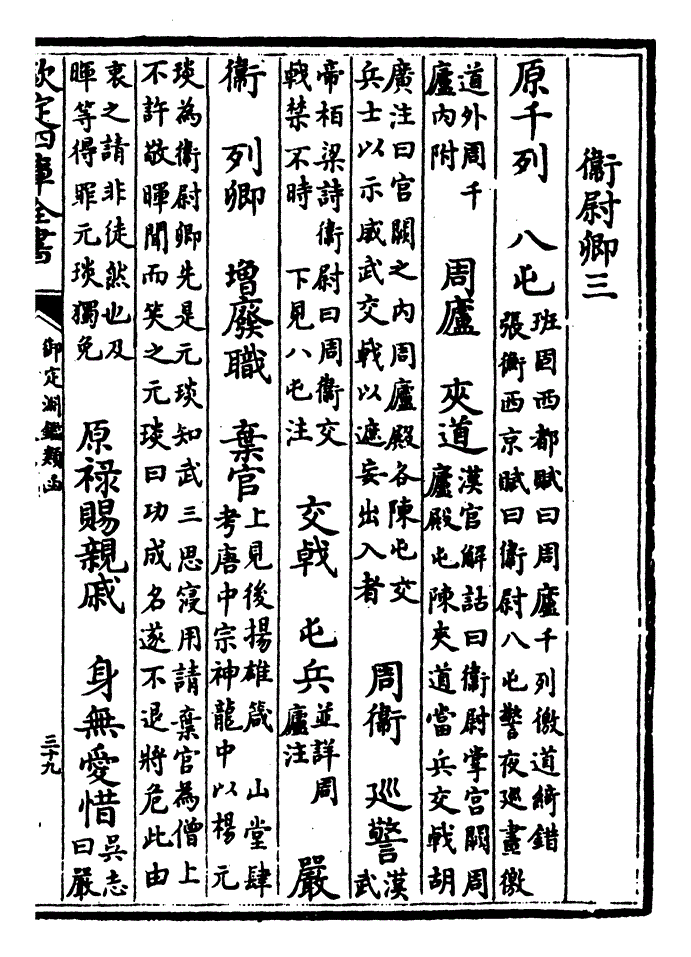 衞尉卿三
原千列　八屯班固西都賦曰周廬千列徼道綺錯
張衡西京賦曰衞尉八屯警夜廵晝徼
道外周千
廬内附　周廬　夾道漢官解詁曰衞尉掌宮闕周
廬殿屯陳夾道當兵交戟胡
廣注曰宮闕之内周廬殿各陳屯交
兵士以示威武交戟以遮妄出入者　周衞　廵警漢
武
帝柏梁詩衞尉曰周衞交
戟禁不時　下見八屯注　交戟　屯兵並詳周
廬注　嚴
衞　列卿　增廢職　棄官上見後揚雄箴　山堂肆
考唐中宗神龍中以楊元
琰為衞尉卿先是元琰知武三思寖用請棄官為僧上
不許敬暉聞而笑之元琰曰功成名遂不退將危此由
衷之請非徒然也及
暉等得罪元琰獨免　原祿賜親戚　身無愛惜吳志
曰嚴
欽定四庫全書
御定淵鑑類函
三十九